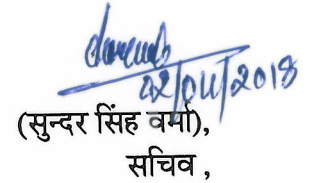 22/04/2018
(सुन्दर सिंह वर्मा),
सचिव ,